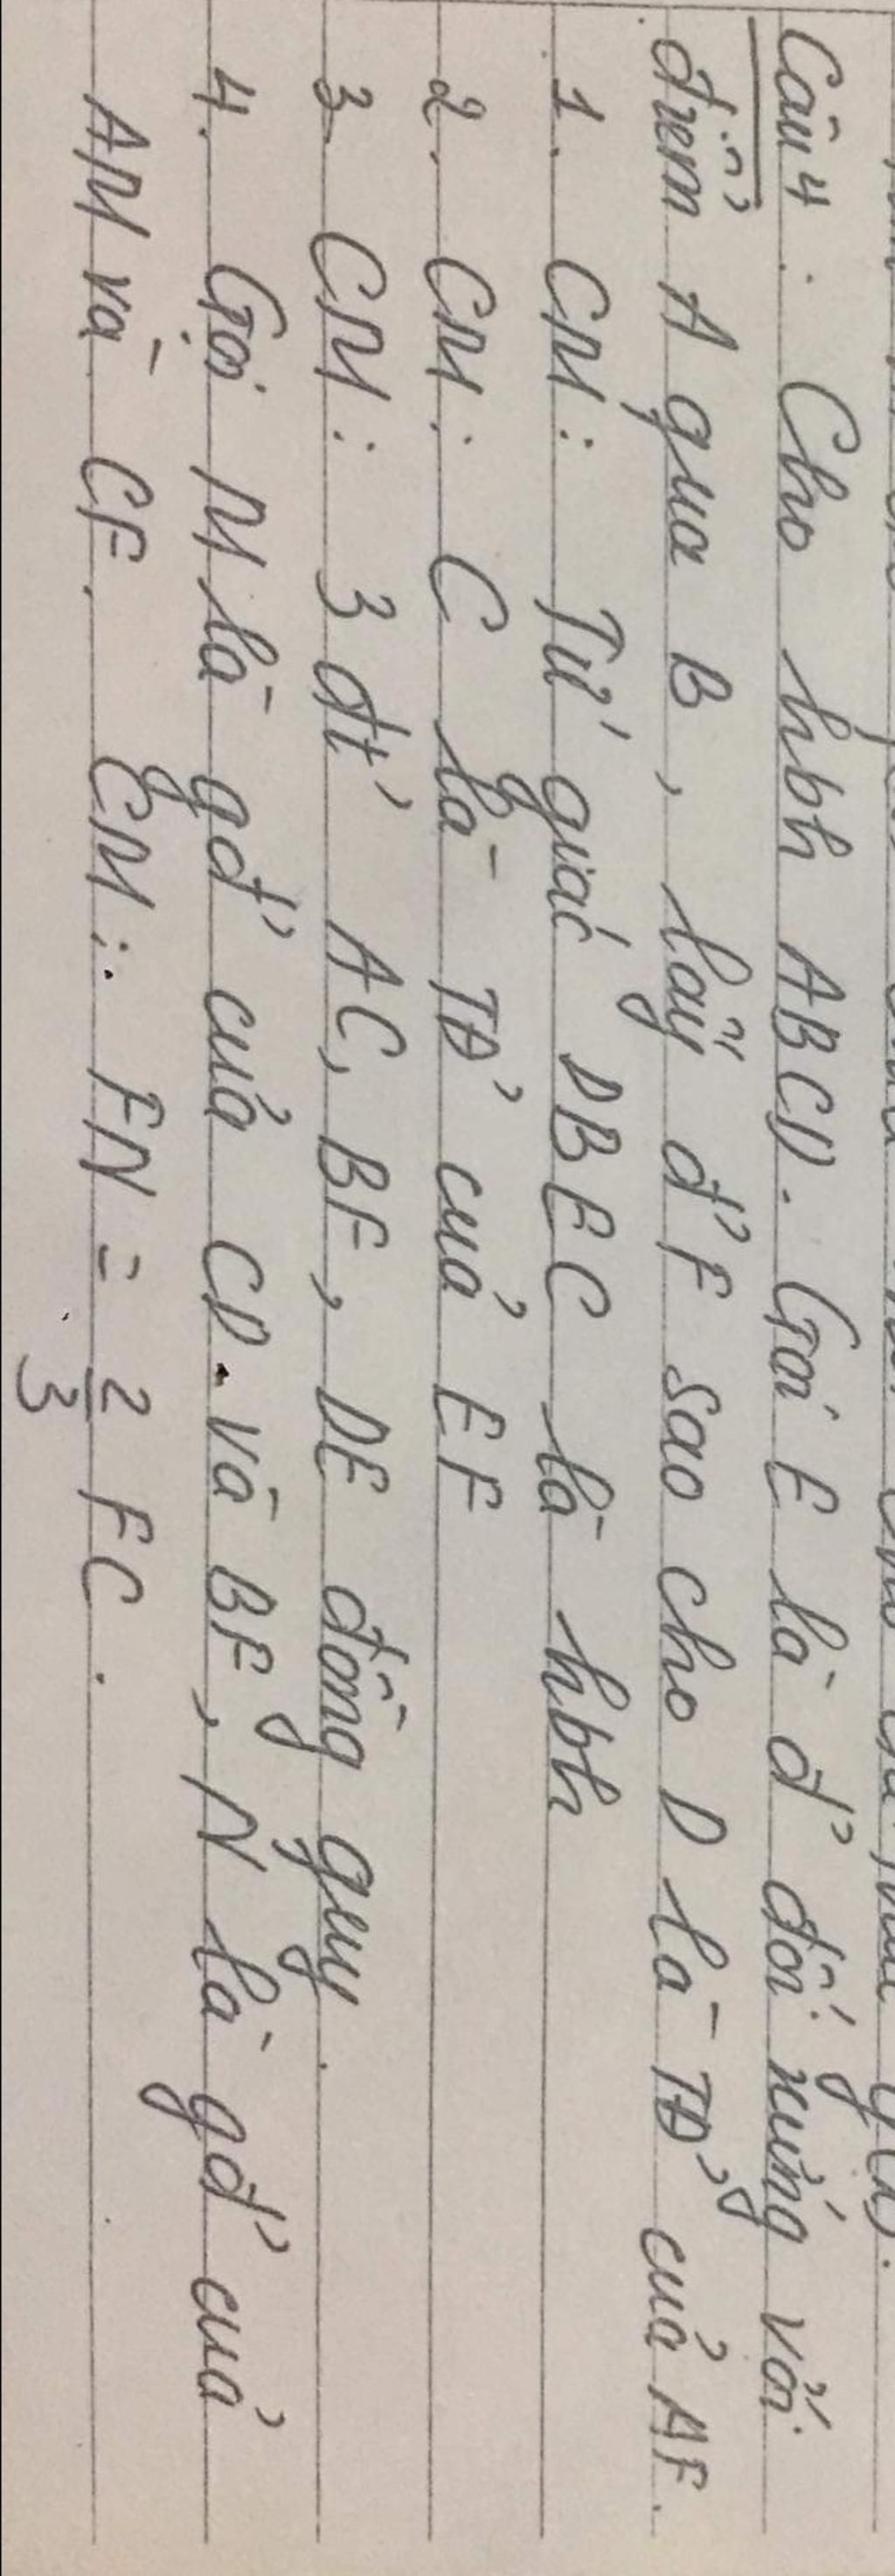 Câu 4 : Cho hbh ABCD. Gọi E là đ' đối xứng với
điểm A qua B, lấy đ' F sao cho D là TĐ' của AF.
1. CM: Tứ giác DBEC là hbh
2. CM: C là TĐ' của EF
3. CM: 3 đt' AC, BF, DE đồng quy.
4. Gọi M là gđ' của CD và BF, N là gđ' của
AM và CF. CM: FN = 2/3 FC.